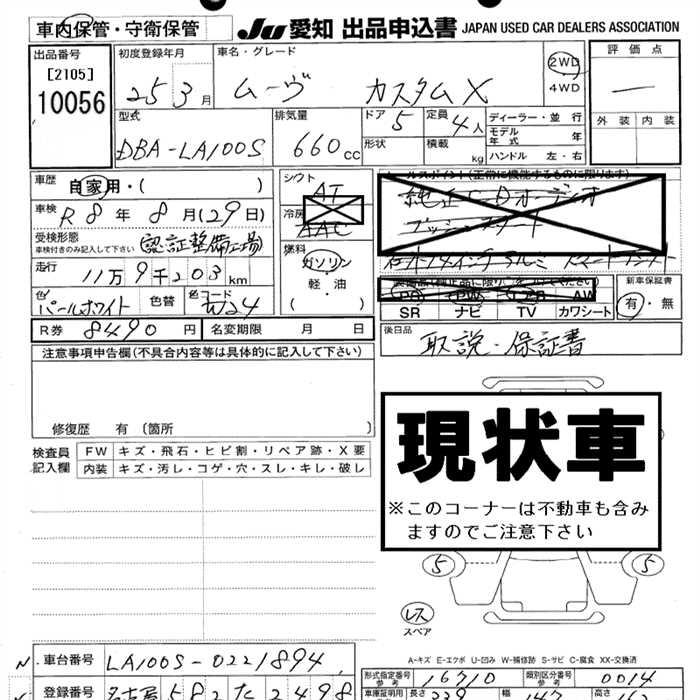 車内保管・守衛保管
JU 愛知 出品申込書 JAPAN USED CAR DEALERS ASSOCIATION
出品番号
[2105]
10056
初度登録年月
25 3 月
車名・グレード
ムーヴ カスタムX
2WD
4WD
評価点
—
外装 内装
型式
DBA-LA100S
排気量
660 cc
ドア
5
定員
4人
形状
積載
kg
ディーラー・並行
モデル年式 年
ハンドル 左・右
車歴
自家用・( )
車検
R8年8月(29日)
受検形態
車検付きのみ記入して下さい
認証整備工場
走行
11万9千203km
色
パールホワイト
色替
色コード
W24
シフト
AT
冷房
AAC
燃料
ガソリン・
軽・油
( )
セールスポイント(正常に機能するものに限ります)
純正CDオーディオ
プッシュスタート
SR ナビ TV カワシート
新車保証書
有・無
R券 8490円
名変期限 月 日
後日品
取説・保証書
注意事項申告欄(不具合内容等は具体的に記入して下さい)
修復歴 有 〔箇所 〕
検査員
記入欄
FW キズ・飛石・ヒビ割・リペア跡・X要
内装 キズ・汚レ・コゲ・穴・スレ・キレ・破レ
現状車
※このコーナーは不動車も含み
ますのでご注意下さい
5 5
レス
スペア
A-キズ E-エクボ U-凹み W-補修跡 S-サビ C-腐食 XX-交換済
車台番号 LA100S-0221894
登録番号 名古屋 582 た 2498
形式指定番号
参考
16710
類別区分番号
参考
0014
車庫証明用
長さ
339
幅
147
高さ